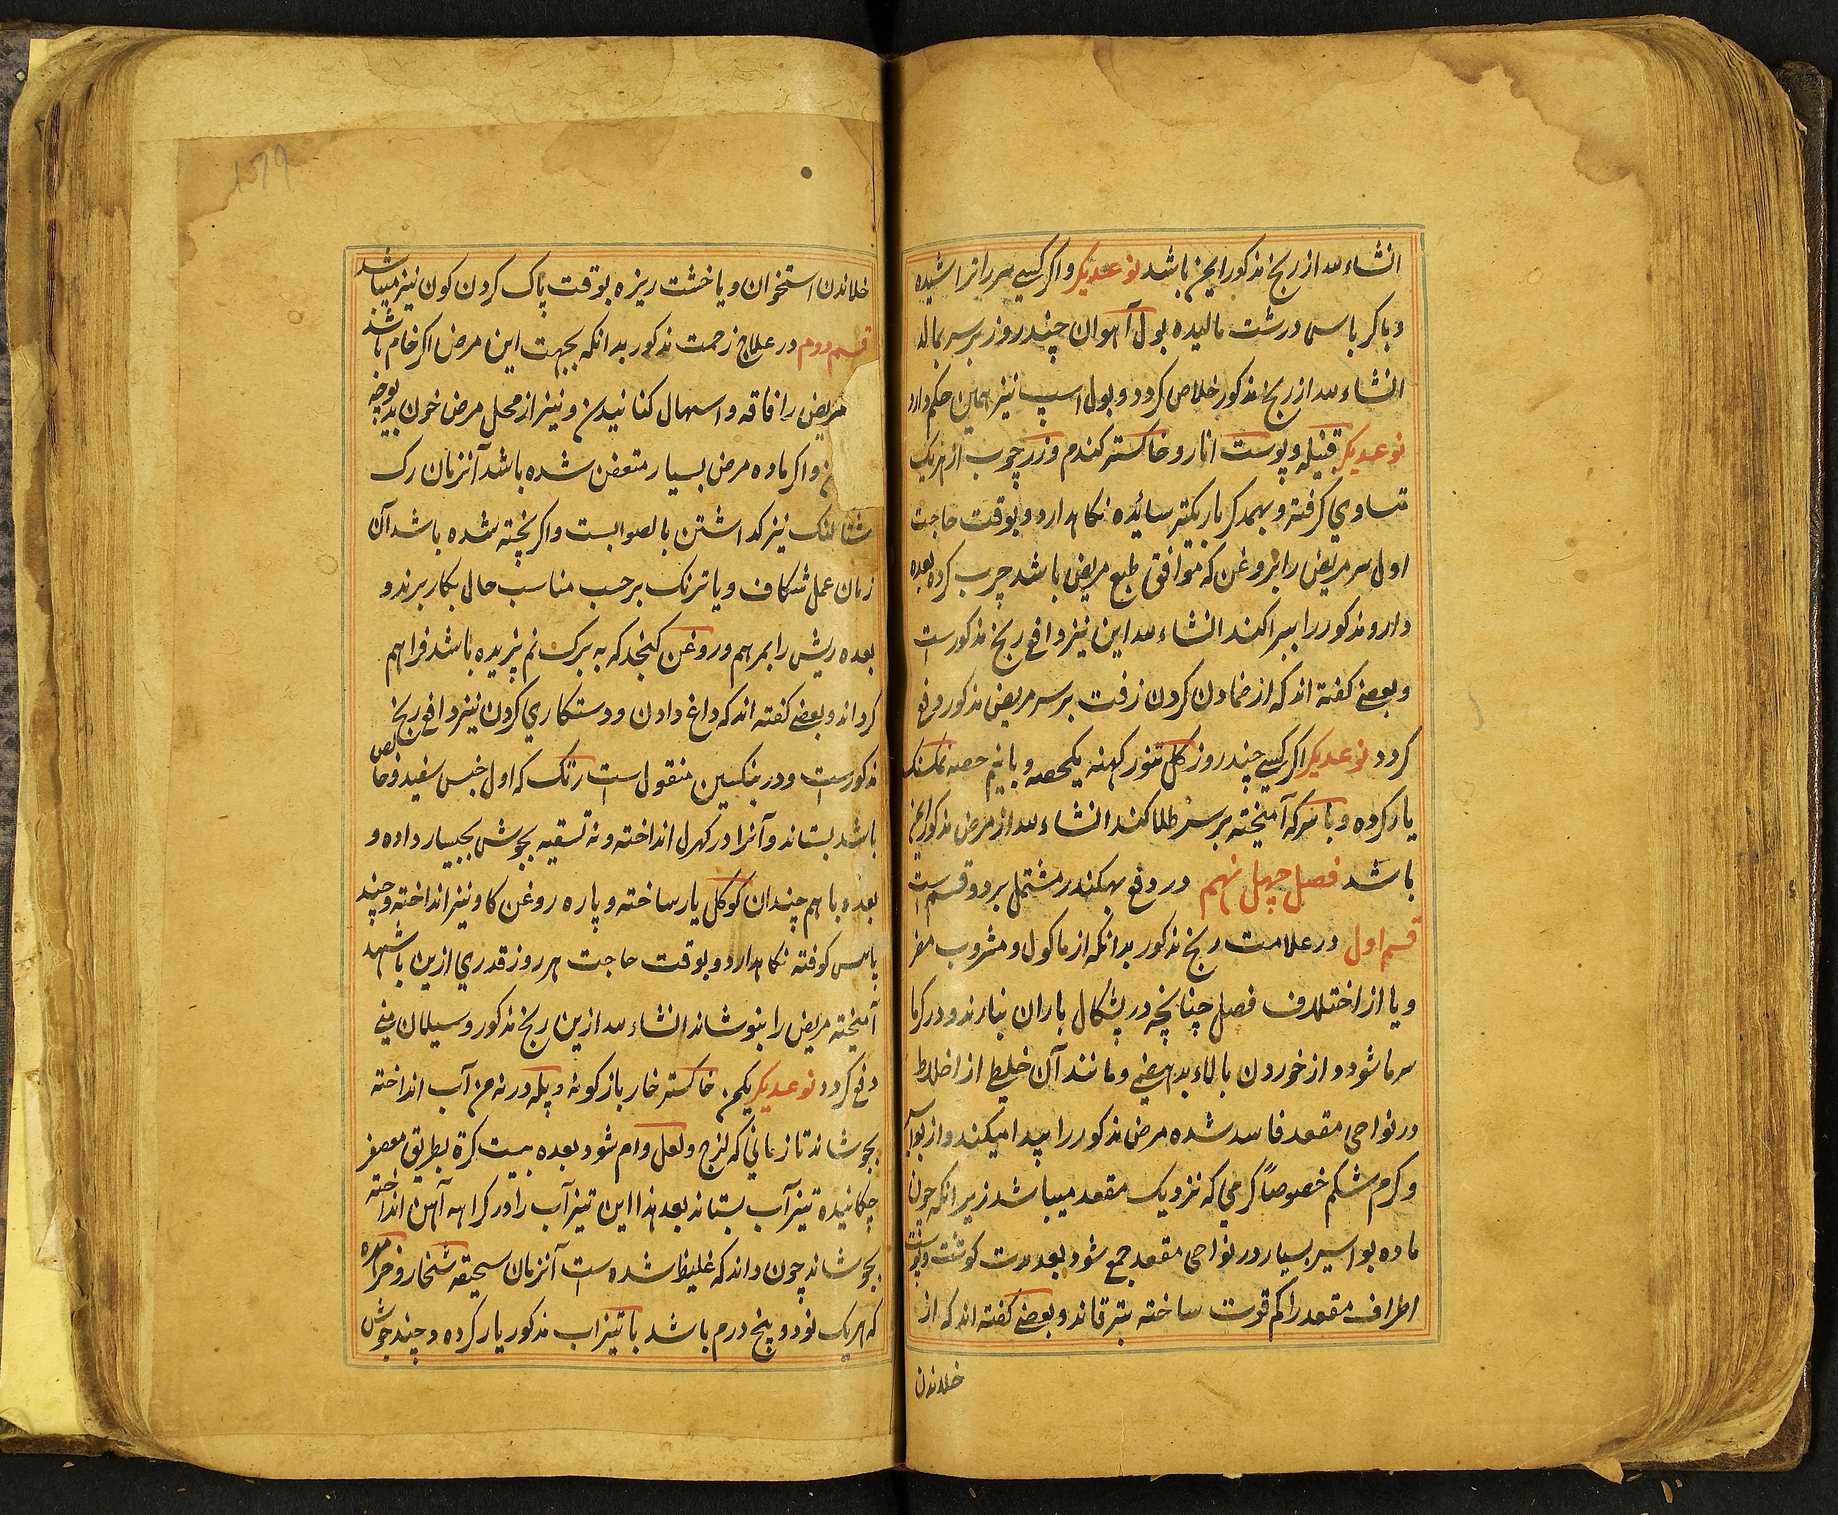 انشاء الله از رنج مذکور ایمن باشد نوعدیکر و اکر کسی سر را تراشیده
و با کرباس درشت مالیده بول آهوان چند روز بر سر بمالد
انشاء الله از رنج مذکور خلاص کردد و بول اسپ نیز همین حکم دارد
نوعدیکر قنیله و پوست انار و خاکستر کندم و زرچوب از هریک
متساوی کرفته و بهمدکر باریکتر سائیده نکاهدارد و بوقت حاجت
اول سر مریض را بروغن که موافق طبع مریض باشد چرب کرده بعده
دارو مذکور را بپراکند انشاء الله این نیز دافع رنج مذکورست
و بعضے کفته اند که از ضمادن کردن زفت بر سر مریض مذکور دفع
کردد نوعدیکر اکر کسی چند روز کل تنور کهنه یکحصه و با نیم حصه نمکسنک
یار کرده و با سرکه آمیخته بر سر طلا کند انشاء الله از مرض مذکور ایمن
باشد فصل چهل نهم در دفع بهکندر مشتمل بر دو قسم است
قسم اول در علامت رنج مذکور بدانکه از ماکول و مشروب مضر
و یا از اختلاف فصل چنانچه در پشکال باران نبارند و در کرما
سرما شود و از خوردن بالاء بدهضمی و مانند آن خلیط از اخلاط
در نواحی مقعد فاسد شده مرض مذکور را پیدا میکند و از بواسیر
و کرم شکم خصوصاً کرمی که نزدیک مقعد میباشد زیرانکه چون
ماده بواسیر بسیار در نواحی مقعد جمع شود بعد مدت کوشت و پوست
اطراف مقعد را کم قوت ساخته بترقاند و بعضے کفته اند که از
خلاندن
خلاندن استخوان و یا خشت ریزه بوقت پاک کردن کون نیز میباشد
قسم دوم در علاج زحمت مذکور بدانکه بجهت این مرض اکر خام باشد
مریض را فاقه و اسهال کنانیدن و نیز از محل مرض خون بدیوچه
و اکر ماده مرض بسیار متعفن شده باشد آنزمان رک
شتالنک نیز کداشتن بالصوابست و اکر پخته شده باشد آن
زمان عمل شکاف و یا ترنک برحسب مناسب حال بکار برند و
بعده ریش را بمرهم و روغن کنجد که به برک نم پزیده باشد فراهم
کرداند و بعضے کفته اند که داغ دادن و دستکاری کردن نیز دافع رنج
مذکورست و در بنکسین منقول است رنک که اول خبس سفید و خالص
باشد بستاند و آنرا در کهرل انداخته و نه تسقیه بجوش بجیسار داده و
بعده با هم چندان کوکل یار ساخته و پاره روغن کاو نیز انداخته و چند
پاس کوفته نکاهدارد و بوقت حاجت هر روز قدری ازین با شهد
آمیخته مریض را بنوشاند انشاء الله ازین رنج مذکور و سیلان منی
دفع کردد نوعدیکر یکمن خاکستر خار بازکونه و پله در نه من آب انداخته
بجوشاند تا زمانی که لزج و لعل وام شود بعده بیست کرة بطریق معصفر
چکانیده تیزآب بستاند بعد هذا این تیزآب را در کراهه آهن انداخته
بجوشاند چون داند که غلیظ شده است آنزمان سحیقه شنخار و خرمهره
که هریک نود و پنج درم باشد با تیزاب مذکور یار کرده و چند جوش